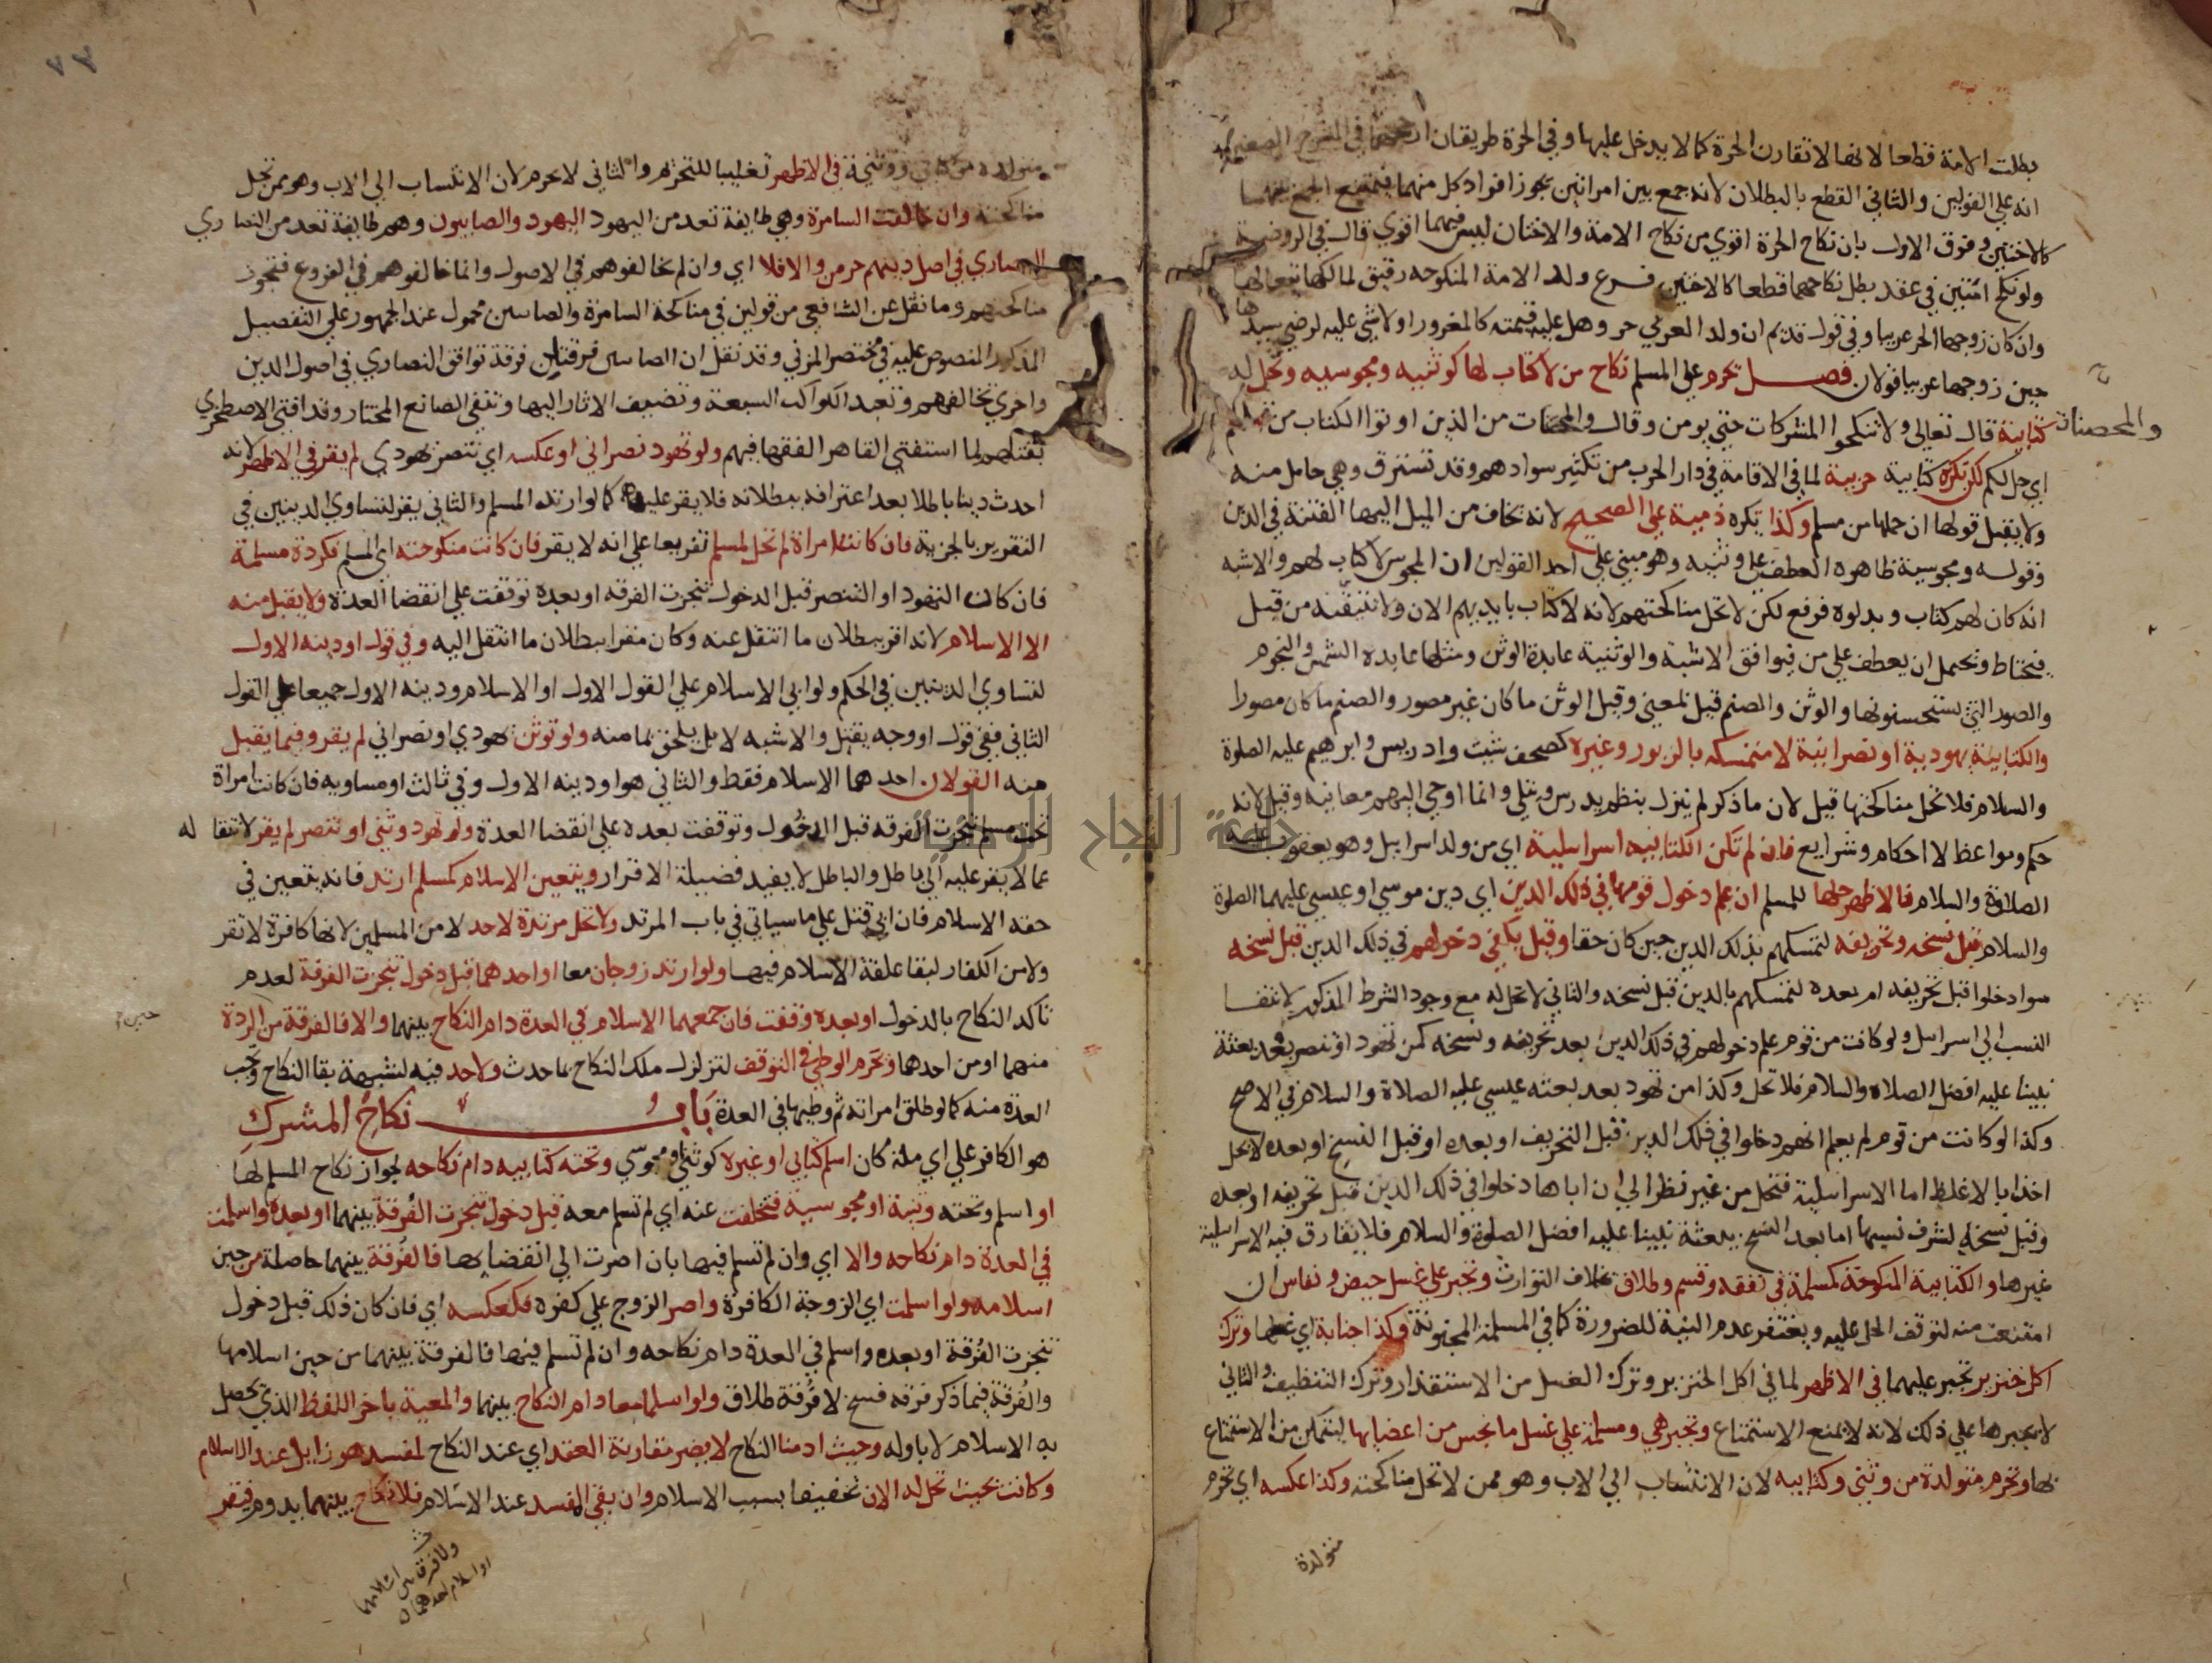 بطلت الامة قطعا لانها لا تقارن الحرة كما لا يدخل عليها وفي الحرة طريقان
انه على القولين والثاني القطع بالبطلان لانه جمع بين امراتين يجوز افراد كل منهما فيمتنع الجمع بينهما
كالاختين وفرق الاول بان نكاح الحرة اقوي من نكاح الامة والاختان ليس فيهما اقوي قال في الروضة
ولو نكح امتين في عقد بطل نكاحهما قطعا كالاختين فرع ولد الامة المنكوحة رقيق لمالكها تبعا لها
وان كان زوجها الحر عربيا وفي قول قديم ان ولد العربي حر وهل عليه قيمته كالمغرور او لا شي عليه لرضي سيدها
حين زوجها عربيا قولان فصل تحرم على المسلم نكاح من لا كتاب لها كوثنيه ومجوسيه وتحل له
كتابية قال تعالي ولا تنكحوا المشركات حتي يومن وقال والمحصنات من الذين اوتوا الكتاب من قبلكم
والمحصنات
اي حل لكم لكن تكره كتابية حربية لما في الاقامة في دار الحرب من تكثير سوادهم وقد تسترق وهي حامل منه
ولا يقبل قولها ان حملها من مسلم وكذا يكره ذمية علي الصحيح لانه يخاف من الميل اليها الفتنة في الدين
وقوله ومجوسية ظاهره العطف علي وثنيه وهو مبني علي احد القولين ان المجوس لا كتاب لهم والاشبه
انه كان لهم كتاب وبدلوه فرفع لكن لا تحل مناكحتهم لانه لا كتاب بايديهم الان ولا نتيقنه من قبل
فيحتاط ويحتمل ان يعطف علي من فيوافق الاشبه والوثنية عابدة الوثن ومثلها عابده الشمس والنجوم
والصور التي يستحسنونها والوثن والصنم قيل بمعني وقيل الوثن ما كان غير مصور والصنم ما كان مصورا
والكتابية يهودية او نصرانية لا متمسكه بالزبور وغيره كصحف شيث وادريس وابرهيم عليه الصلوة
والسلام فلا تحل مناكحتها قيل لان ما ذكر لم ينزل بنظم يدرس ويتلي وانما اوحي اليهم معانيه وقيل لانه
حكم ومواعظ لا احكام وشرايع فان لم تكن الكتابيه اسراييلية اي من ولد اسرايل وهو يعقوب عليه
الصلاة والسلام فالاظهر حلها للمسلم ان علم دخول قومها في ذلك الدين اي دين موسي او عيسي عليهما الصلوة
والسلام قبل نسخه وتحريفه لتمسكهم بذلك الدين حين كان حقا وقيل يكفي دخولهم في ذلك الدين قبل نسخه
سوا دخلوا قبل تحريفه ام بعده لتمسكهم بالدين قبل نسخه والثاني لا تحل له مع وجود الشرط المذكور لانتفا
النسب الي اسرايل ولو كانت من قوم علم دخولهم في ذلك الدين بعد تحريفه ونسخه كمن تهود او تنصر بعد بعثة
نبينا عليه افضل الصلاه والسلام فلا تحل وكذا من تهود بعد بعثه عيسي عليه الصلاة والسلام في الاصح
وكذا لو كانت من قوم لم يعلم انهم دخلوا في ذلك الدين قبل التحريف او بعده او قبل النسخ او بعده لا تحل
اخذا بالاغلظ اما الاسراييلية فتحل من غير نظر الي ان اباها دخلوا في ذلك الدين قبل تحريفه او بعده
وقبل نسخه لشرف نسبها اما بعد النسخ ببعثة نبينا عليه افضل الصلوة والسلام فلا يفارق فيه الاسراييلية
غيرها والكتابية المنكوحة كمسلمة في نفقه وقسم وطلاق بخلاف التوارث وتجبر علي غسل حيض ونفاس ان
امتنعت منه لتوقف الحل عليه ويغتفر عدم النية للضرورة كما في المسلمة المجنونة وكذا جنابة اي غسلها وترك
اكل خنزير تجبر عليهما في الاظهر لما في اكل الخنزير وترك الغسل من الاستقذار وترك التنظيف والثاني
لا يجبرها علي ذلك لانه لا يمنع الاستمتاع وتجبر هي ومسلمة علي غسل ما نجس من اعضايها ليتمكن من الاستمتاع
بها وتحرم متولدة من وثني وكتابيه لان الانتساب الي الاب وهو ممن لا تحل مناكحته وكذا عكسه اي تحرم
متولدة
متولدة من كتابي ووثنية في الاظهر تغليبا للتحريم والثاني لا تحرم لان الانتساب الي الاب وهو ممن تحل
مناكحته وان خالفت السامرة وهي طايفة تعد من اليهود اليهود والصابيون وهم طايفة تعد من النصاري
النصاري في اصل دينهم حرمن والا فلا اي وان لم يخالفوهم في الاصول وانما خالفوهم في الفروع فتجوز
مناكحتهم وما نقل عن الشافعي من قولين في مناكحة السامرة والصابيين محمول عند الجمهور علي التفصيل
المذكور المنصوص عليه في مختصر المزني وقد نقل ان الصابيين فرقتان فرقة توافق النصاري في اصول الدين
واخري تخالفهم وتعبد الكواكب السبعة وتضيف الاثار اليها وتنفي الصانع المختار وقد افتي الاصطخري
بقتلهم لما استفتي القاهر الفقها فيهم ولو تهود نصراني او عكسه اي تنصر يهودي لم يقر في الاظهر لانه
احدث دينا باطلا بعد اعترافه ببطلانه فلا يقر عليه كما لو ارتد المسلم والثاني يقر لتساوي الدينين في
التقرير بالجزية فان كانت امراة لم تحل لمسلم تفريعا علي انه لا يقر فان كانت منكوحته اي المسلم فكردة مسلمة
فان كان التهود او التنصر قبل الدخول تنجزت الفرقه او بعده توقفت علي انقضا العدة ولا يقبل منه
الا الاسلام لانه اقر ببطلان ما انتقل عنه وكان مقرا ببطلان ما انتقل اليه وفي قول او دينه الاول
لتساوي الدينين في الحكم ولو ابي الاسلام علي القول الاول او الاسلام ودينه الاول جميعا علي القول
الثاني ففي قول او وجه يقتل والاشبه لا بل يلحق بمامنه ولو توثن يهودي او نصراني لم يقر وفيما يقبل
منه القولان احدهما الاسلام فقط والثاني هو او دينه الاول وفي ثالث او مساويه فان كانت امراة
تحت مسلم تنجزت الفرقه قبل الدخول وتوقفت بعده علي انقضا العدة ولو تهود وثني او تنصر لم يقر لانتقا له
عما لا يقر عليه الي باطل والباطل لا يفيد فضيلة الاقرار ويتعين الاسلام كمسلم ارتد فانه يتعين في
حقه الاسلام فان ابي قتل علي ما سياتي في باب المرتد ولا تحل مرتدة لاحد لا من المسلمين لانها كافرة لا تقر
ولا من الكفار لبقا علقة الاسلام فيها ولو ارتد زوجان معا او احدهما قبل دخول تنجزت الفرقة لعدم
تاكد النكاح بالدخول او بعده وقفت فان جمعهما الاسلام في العدة دام النكاح بينهما والا فالفرقة من الردة
منهما او من احدهما وتحرم الوطي في التوقف لتزلزل ملك النكاح بما حدث ولا حد فيه لشبهة بقا النكاح وتجب
العدة منه كما لو طلق امراته ثم وطيها في العدة باب نكاح المشرك
هو الكافر علي اي ملة كان اسلم كتابي او غيره كوثني ومجوسي وتحته كتابيه دام نكاحه لجواز نكاح المسلم لها
او اسلم وتحته وثنية او مجوسية فتخلفت عنه اي لم تسلم معه قبل دخول تنجزت الفرقة بينهما او بعده واسلمت
في العدة دام نكاحه والا اي وان لم تسلم فيها بان اصرت الي انقضايها فالفرقة بينهما حاصلة من حين
اسلامه ولو اسلمت اي الزوجة الكافرة واصر الزوج علي كفره فكعكسه اي فان كان ذلك قبل دخول
تنجزت الفرقة او بعده واسلم في العدة دام نكاحه وان لم تسلم فيها فالفرقة بينهما من حين اسلامها
والفرقة فيما ذكر فرقه فسخ لا فرقة طلاق ولو اسلما معا دام النكاح بينهما والمعية باخر اللفظ الذي يحصل
به الاسلام لا باوله وحيث ادمنا النكاح لا يضر مقارنة العقد اي عند النكاح لمفسد هو زايل عند الاسلام
وكانت بحيث تحل له الان تخفيفا بسبب الاسلام وان بقي المفسد عند الاسلام فلا نكاح بينهما يدوم فيقر